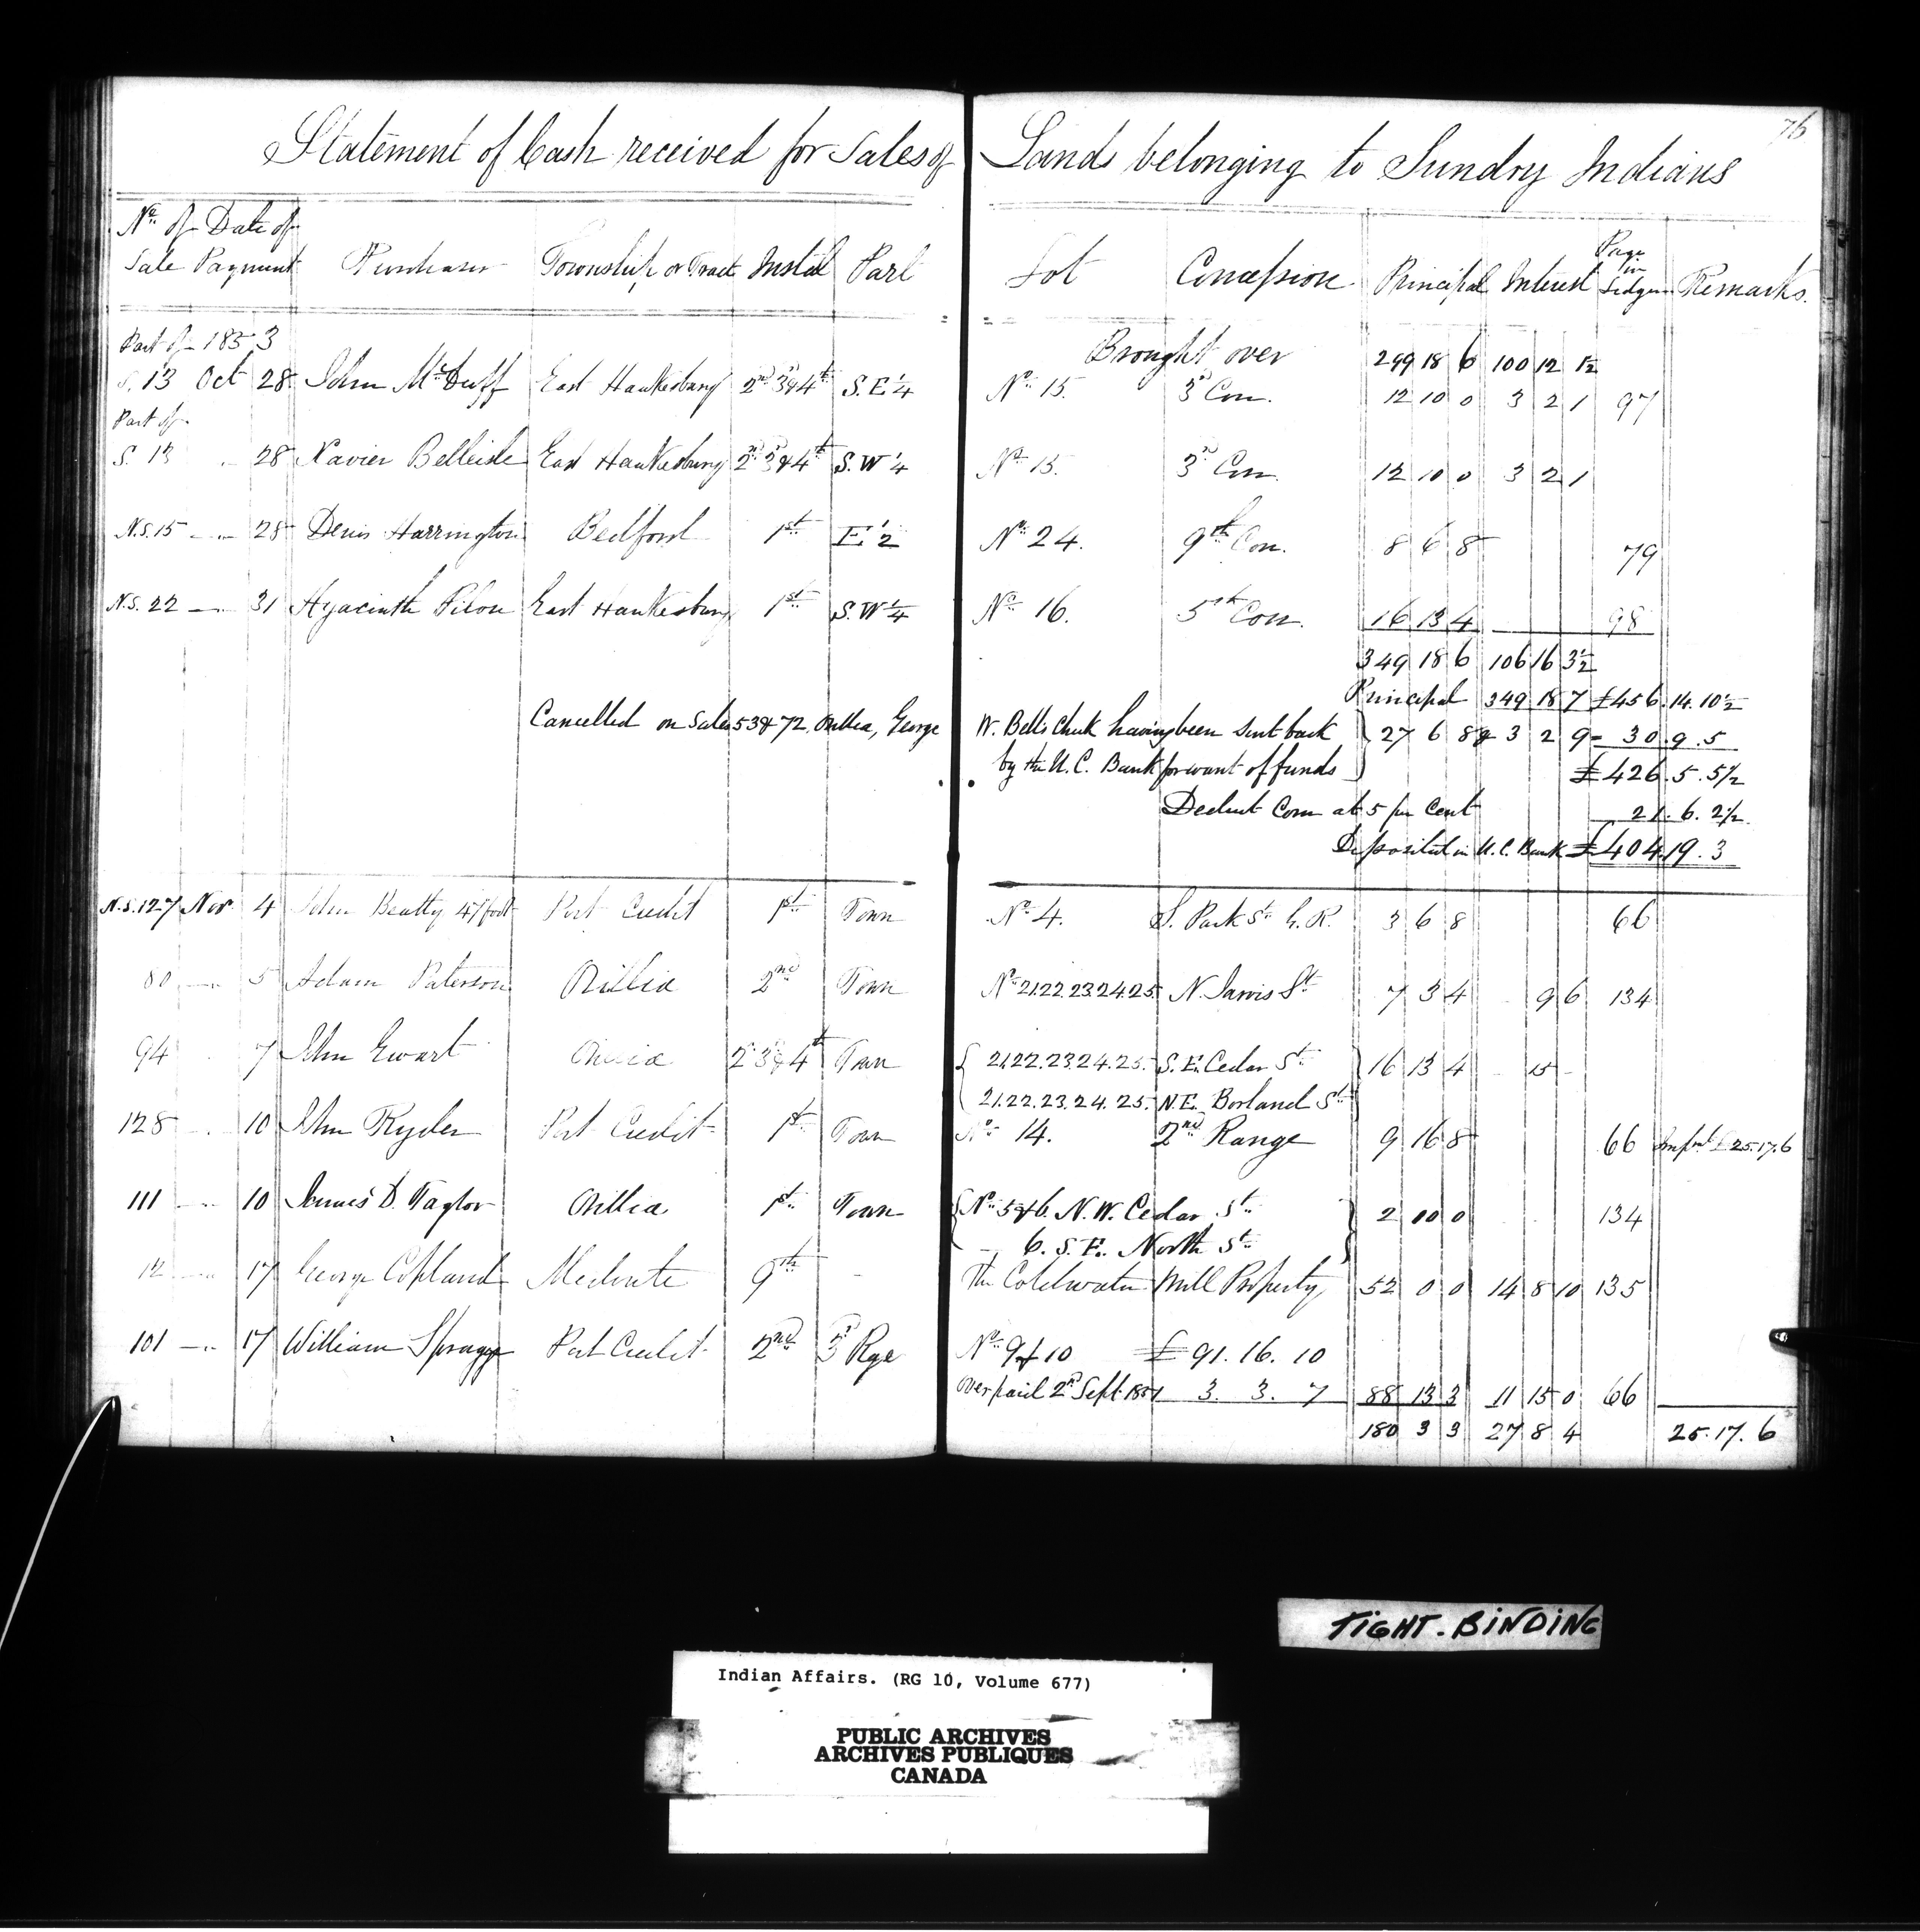 76
Statement of Cash received for Sales of Lands belonging to Sundry Indians
No. of Sale Date of Payment Purchaser Township or Tract Instal Part Lot Concession Principal Interest Page in Ledger Remarks.
Part of 1853 Brought over 299 18 6 100 12 1½
S. 13 Oct 28 John McDuff East Hawkesbury 2nd 3d & 4th S.E ¼ No. 15. 3d Con. 12 10 0 3 2 1 97
Part of
S. 13 " 28 Xavier Belleisle East Hawkesbury 2nd 3d & 4th S.W ¼ No. 15. 3d Con. 12 10 0 3 2 1
N.S. 15 — " 28 Denis Harrington Bedford 1st E ½ No. 24. 9th Con. 8 6 8 79
N.S. 22 — " 31 Hyacinth Pilon East Hawkesbury 1st S.W ¼ No. 16. 5th Con. 16 13 4 98
349 18 6 106 16 3½
Principal 349 18 7 £456. 14. 10½
Cancelled on Sales 53 & 72 Orillia, George W. Bell's Check having been sent back 27 6 8 & 3 2 9 = 30. 9. 5
by the U.C. Bank for want of funds £426. 5. 5½
Deduct Com at 5 per Cent 21. 6. 2½
Deposited in U.C. Bank £404. 19. 3
N.S. 127 Nov. 4 John Beatty 47 foot Port Credit 1st Town No. 4. S. Park St. G. R. 3 6 8 66
80 — " 5 Adam Paterson Orillia 2nd Town No. 21. 22. 23. 24. 25. N. Jarvis St. 7 3 4 9 6 134
94 " 7 John Ewart Orillia 2d 3d & 4th Town 21. 22. 23. 24. 25. S. E. Cedar St. 16 13 4 - 15 -
21. 22. 23. 24. 25. N.E. Borland St.
128 — " 10 John Ryder Port Credit 1st Town No. 14. 2nd Range 9 16 8 66 £25.17.6
111 — " 10 James D. Taylor Orillia 1st Town No. 5 & 6. N.W. Cedar St. 2 10 0 134
6. S. E. North St.
12 — " 17 George Copland Medonte 9th - The Coldwater Mill Property 52 0 0 14 8 10 135
101 — " 17 William Spragge Port Credit 2nd 3d Rge No. 9 & 10 £ 91. 16. 10
over paid 2d Sept. 1851 3. 3. 7 88 13 3 11 15 0 66
180 3 3 27 8 4 25. 17. 6
TIGHT. BINDING
Indian Affairs. (RG 10, Volume 677)
PUBLIC ARCHIVES
ARCHIVES PUBLIQUES
CANADA